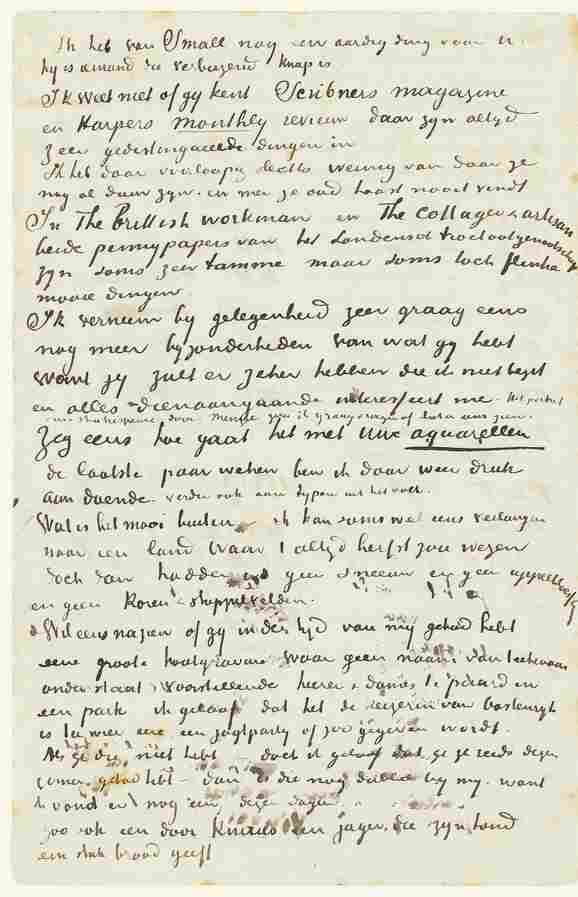 Ik heb van Small nog een aardig ding voor U.
hij is iemand die verbazend knap is
Ik weet niet of gy kent Scribners magazine
en Harpers monthly review daar zyn altyd
zeer gedistingueerde dingen in
Ik heb daar voorloopig slechts weinig van daar ze
nog al duur zyn en men ze oud haast nooit vindt
In The British workman en The cottager & artisan
beide pennypapers van het Londensch tractaatgenootschap
zyn soms zeer tamme maar soms toch flinke
mooie dingen
Ik verneem by gelegenheid zeer graag eens
nog meer byzonderheden van wat gy hebt
want gy zult er zeker hebben die ik niet bezit
en alles dienaangaande interesseert me. Het portret
van Shakespeare door Menzel zou ik graag eens zien.
Zeg eens hoe gaat het met uwe aquarellen
de laatste paar weken ben ik daar weer druk
aan doende. verder ook aan typen uit het volk.
Wat is het mooi buiten ik kan soms wel eens verlangen
naar een land waar 't altyd herfst zou wezen
doch dan hadden we geen sneeuw en geen appelbloesem
en geen koren & stoppelvelden.
Wil eens nazien of gy in der tyd van my gehad hebt
eene groote houtgravure waar geen naam van teekenaar
onder staat voorstellende heeren & dames te paard in
een park ik geloof dat het de keizerin van Oostenryk
is ter wier eere een jagtparty of zoo gegeven wordt.
Als ge die niet hebt doch ik geloof dat ge ze reeds dezen
zomer gehad hebt - dan is die nog dubbel by my. want
ik vond er nog een dezer dagen
zoo ook een door een jager die zyn hond
een stuk brood geeft